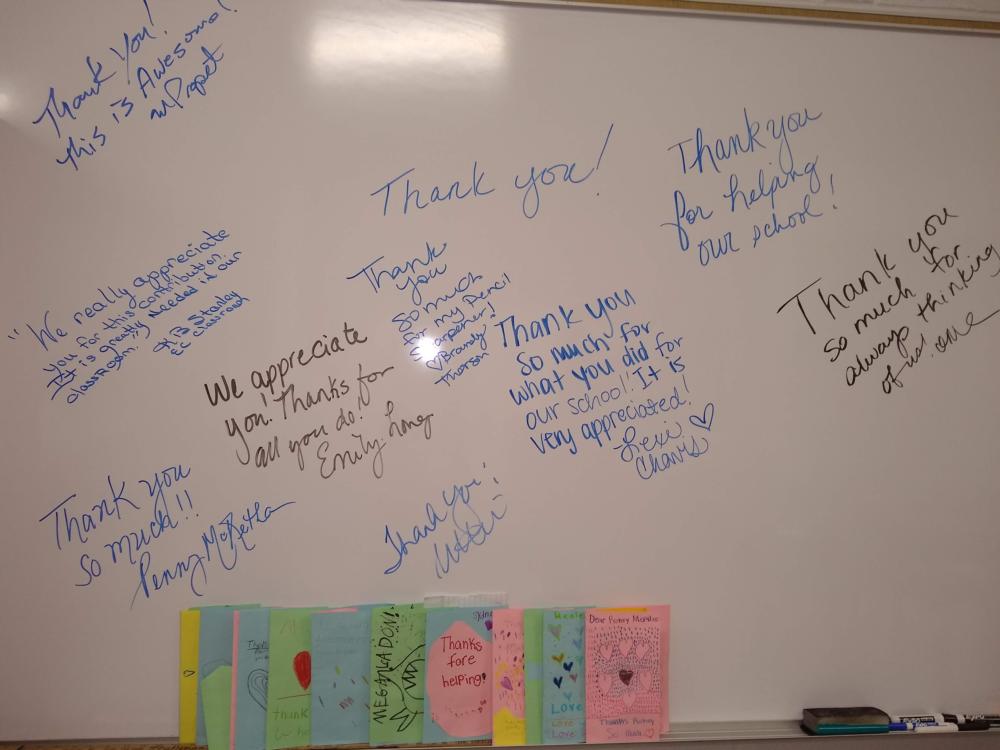 Thank you!
this is Awesome!
Thank you!
Thank you
for helping
our school!
"We really appreciate
you for this contribution.
It is greatly needed in our
classroom."
K. B. Stanley
EC classroom
Thank
you
so much
for my Pencil
Sharpener!
♡ Brandy
Thorson
Thank you
so much for
always thinking
of us!
We appreciate
you! Thanks for
all you do!
Emily Long
Thank you
so much for
what you did for
our school! It is
very appreciated!
-Lexi ♡
Chavis
Thank you
so much!!
Penny McKetha
Thank you!
MEGALADON!
Thanks
fore
helping!
thank
Love
Love
Love
Dear Penny
Thanks
So Much ♡